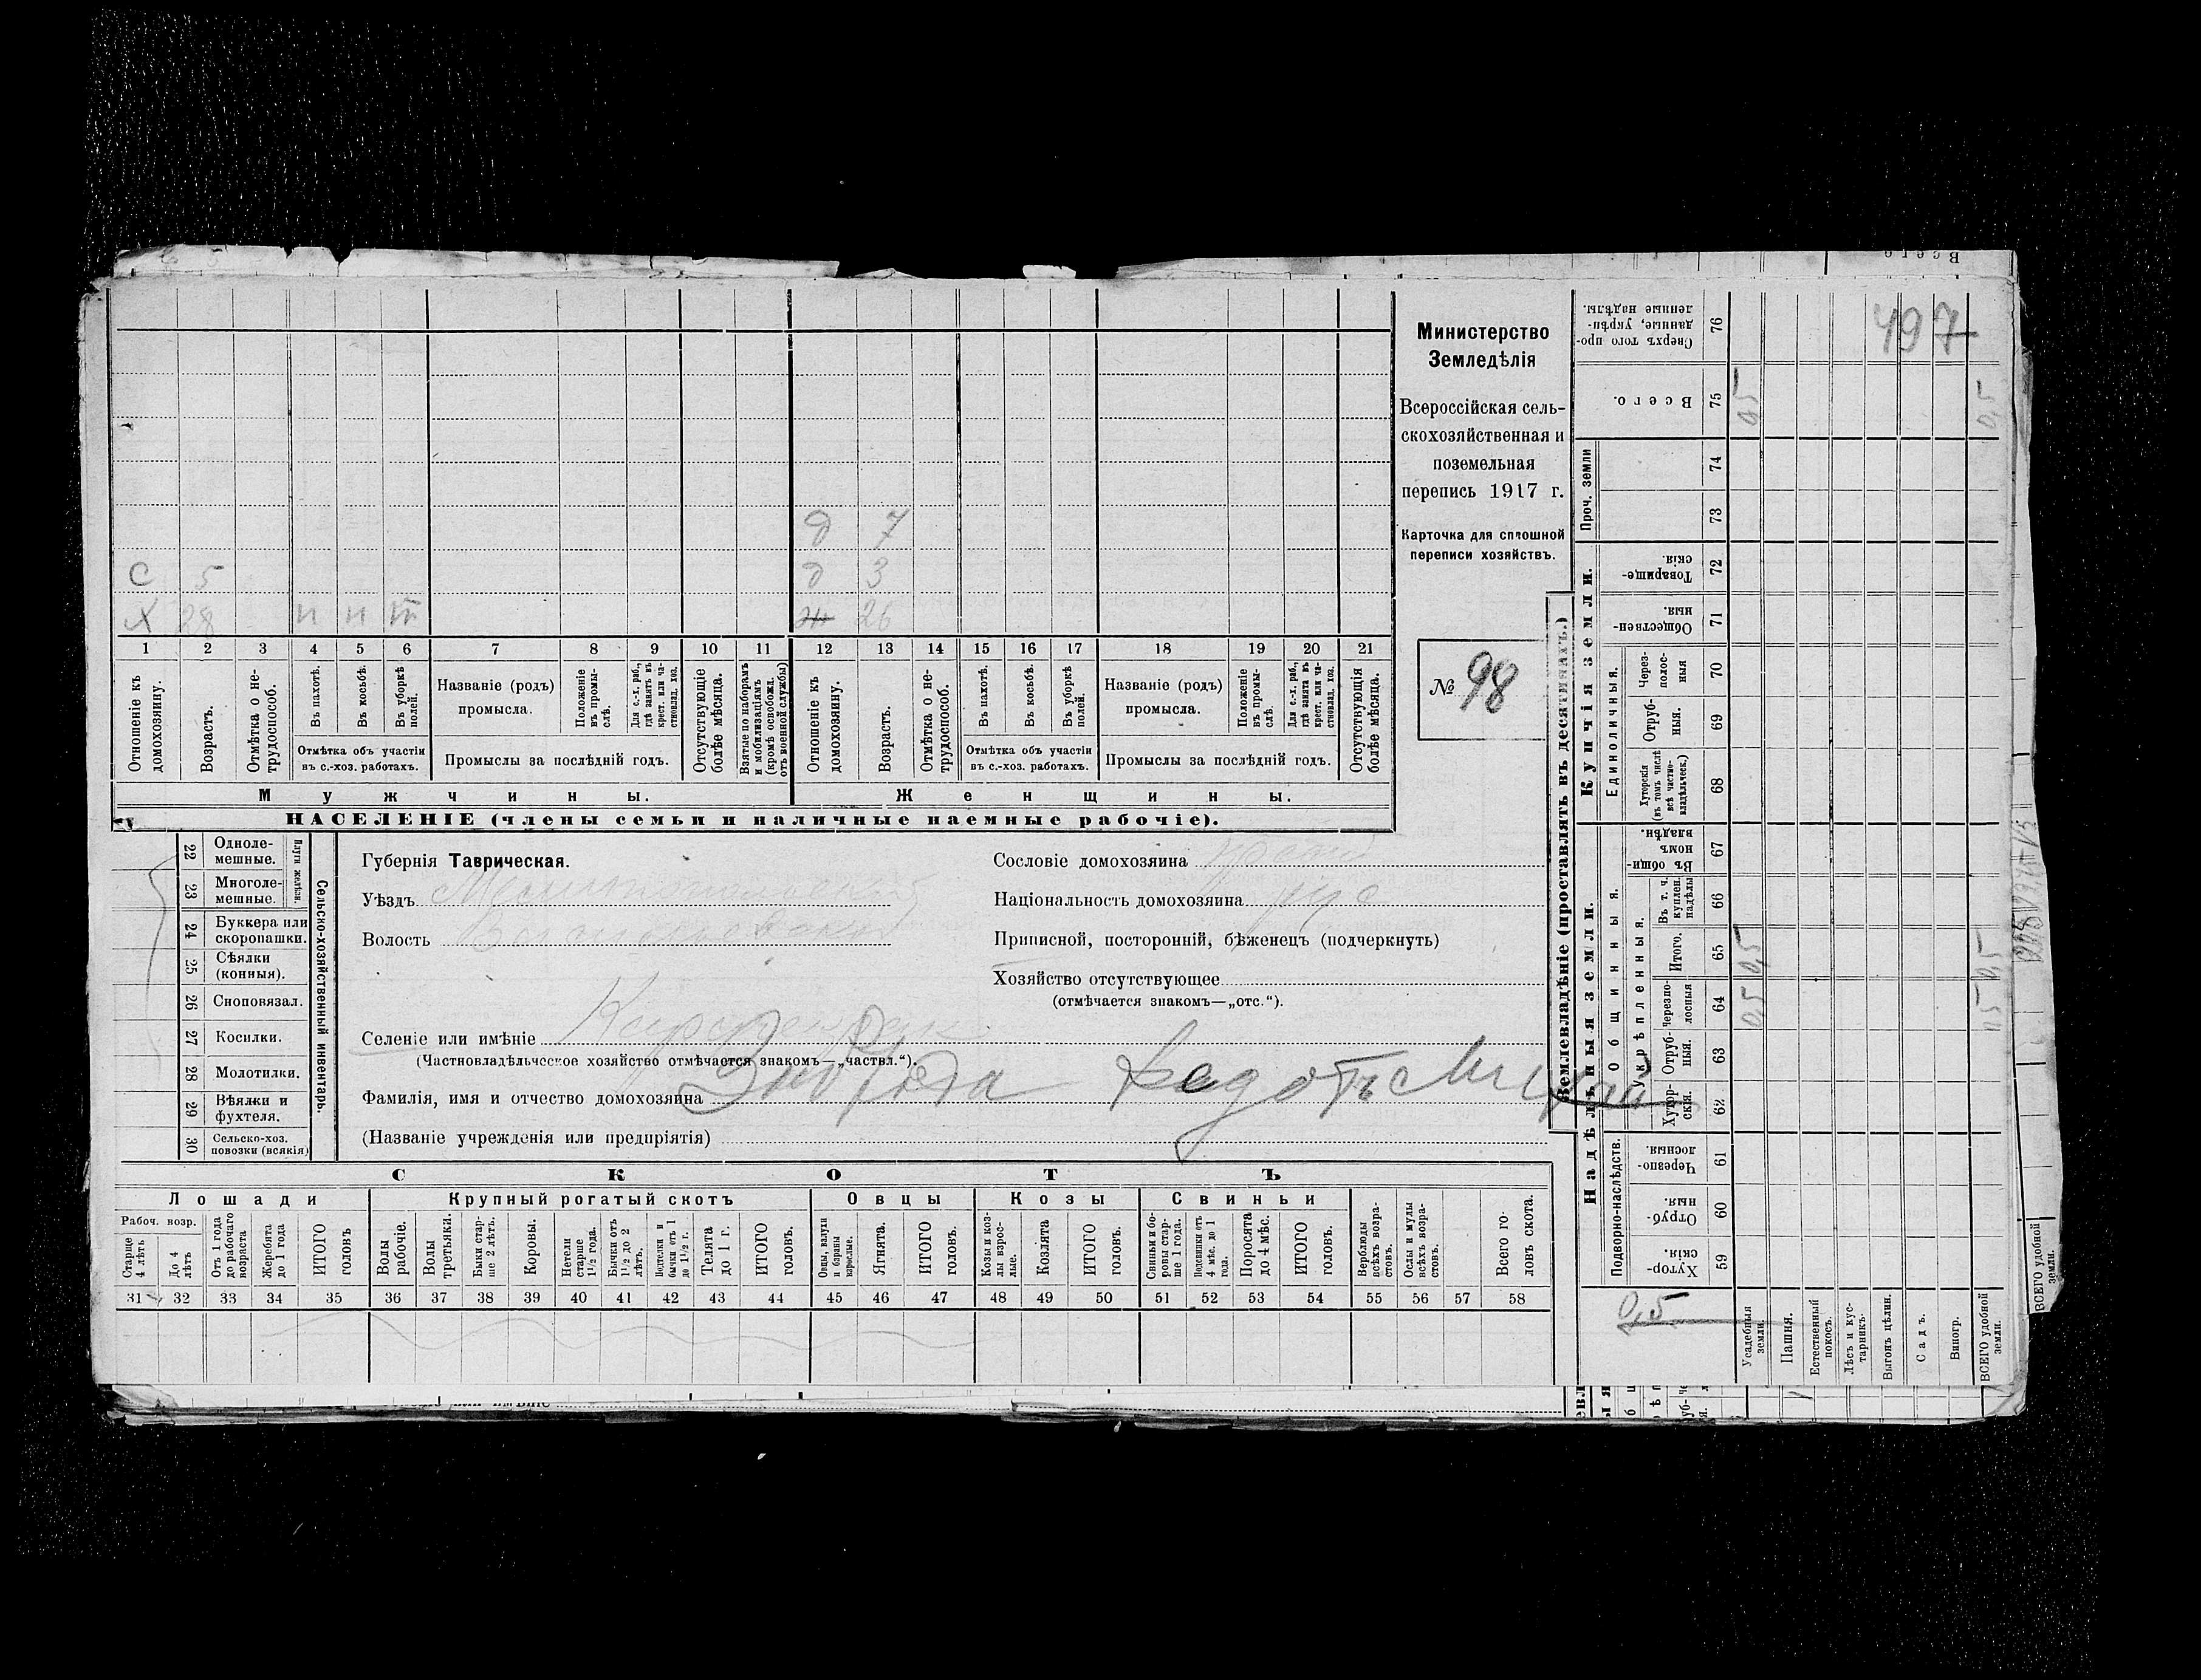 Всего
497
Министерство
Земледѣлія
Всероссійская сель-
скохозяйственная и
поземельная
перепись 1917 г.
Карточка для сплошной
переписи хозяйствъ.
№ 98
д 7
С 5 д 3
Х 28 п п ж 26
1 2 3 4 5 6 7 8 9 10 11 12 13 14 15 16 17 18 19 20 21
Отношеніе къ домохозяину.
Возрастъ.
Отмѣтка о не-трудоспособ.
Въ пахотѣ.
Въ косьбѣ.
Въ уборкѣ полей.
Отмѣтка объ участіи
въ с.-хоз. работахъ.
Названіе (родъ)
промысла.
Положеніе въ промы-слѣ.
Для с.-х. раб., гдѣ занятъ въ крест. или ча-стновлад. хоз.
Промыслы за послѣдній годъ.
Отсутствующіе болѣе мѣсяца.
Взятые по наборамъ и мобилизаціямъ (кромѣ освобожд. отъ военной службы)
Отношеніе къ домохозяину.
Возрастъ.
Отмѣтка о не-трудоспособ.
Въ пахотѣ.
Въ косьбѣ.
Въ уборкѣ полей.
Отмѣтка объ участіи
въ с.-хоз. работахъ.
Названіе (родъ)
промысла.
Положеніе въ промы-слѣ.
Для с.-х. раб., гдѣ занята въ крест. или ча-стновлад. хоз.
Промыслы за послѣдній годъ.
Отсутствующія болѣе мѣсяца.
Мужчины.
Женщины.
НАСЕЛЕНІЕ (члены семьи и наличные наемные рабочіе).
22 Одноле-мешные.
23 Многоле-мешные.
Плуги желѣзн.
24 Буккера или скоропашки.
25 Сѣялки (конныя).
26 Сноповязал.
27 Косилки.
28 Молотилки.
29 Вѣялки и фухтеля.
30 Сельско-хоз. повозки (всякія)
Сельско-хозяйственный инвентарь.
Губернія Таврическая.
Уѣздъ Мелитопольский
Волость
Селеніе или имѣніе
(Частновладѣльческое хозяйство отмѣчается знакомъ—„частвл.“).
Фамилія, имя и отчество домохозяина Федотъ
(Названіе учрежденія или предпріятія)
Сословіе домохозяина
Національность домохозяина рус
Приписной, посторонній, бѣженецъ (подчеркнуть)
Хозяйство отсутствующее
(отмѣчается знакомъ—„отс.“).
СКОТЪ
Лошади
Крупный рогатый скотъ
Овцы
Козы
Свиньи
Рабоч. возр.
Старше 4 лѣтъ
До 4 лѣтъ
Отъ 1 года до рабочаго возраста
Жеребята до 1 года
ИТОГО головъ
Волы рабочіе.
Волы третьяки.
Быки стар-ше 2 лѣтъ.
Коровы.
Нетели старше 1 1/2 года.
Бычки отъ 1 1/2 до 2 лѣтъ.
Подтелки и бычки отъ 1 до 1 1/2 г.
Телята до 1 г.
ИТОГО головъ.
Овцы, валухи и бараны взрослые.
Ягнята.
ИТОГО головъ.
Козы и коз-лы взрос-лые.
Козлята
ИТОГО головъ.
Свиньи и бо-ровы стар-ше 1 года.
Подсвинки отъ 4 мѣс. до 1 года.
Поросята до 4 мѣс.
ИТОГО головъ.
Верблюды всѣхъ возра-стовъ.
Ослы и мулы всѣхъ возра-стовъ.
Всего го-ловъ скота.
31 32 33 34 35 36 37 38 39 40 41 42 43 44 45 46 47 48 49 50 51 52 53 54 55 56 57 58
Землевладѣніе (проставлять въ десятинахъ.)
Купчія земли.
Надѣльныя земли.
Сверхъ того про-данные, укрѣп-ленные надѣлы. 76
Всего. 75 0,5 0,5
Проч. земли 74 73
Товарище-скія. 72
Обществен-ныя. 71
Единоличныя.
Через-полос-ныя 70
Отруб-ныя. 69
Хуторскія (въ томъ числѣ всѣ частно-владѣльческ.) 68
Общинныя.
Въ общи-номъ владѣн. 67
Укрѣпленныя.
Въ т. ч. куплен. надѣлы 66
Итого. 65 0,5 0,5
Черезпо-лосныя 64 0,5 0,5
Отруб-ныя. 63
Хутор-скія. 62
Подворно-наслѣдств.
Черезпо-лосныя 61
Отруб-ныя. 60
Хутор-скія. 59
0,5
Усадебныя земли.
Пашня.
Естественный покосъ.
Лѣсъ и кус-тарникъ
Выгонъ цѣлин.
Садъ.
Виногр.
ВСЕГО удобной земли.
ВСЕГО удобной земли.